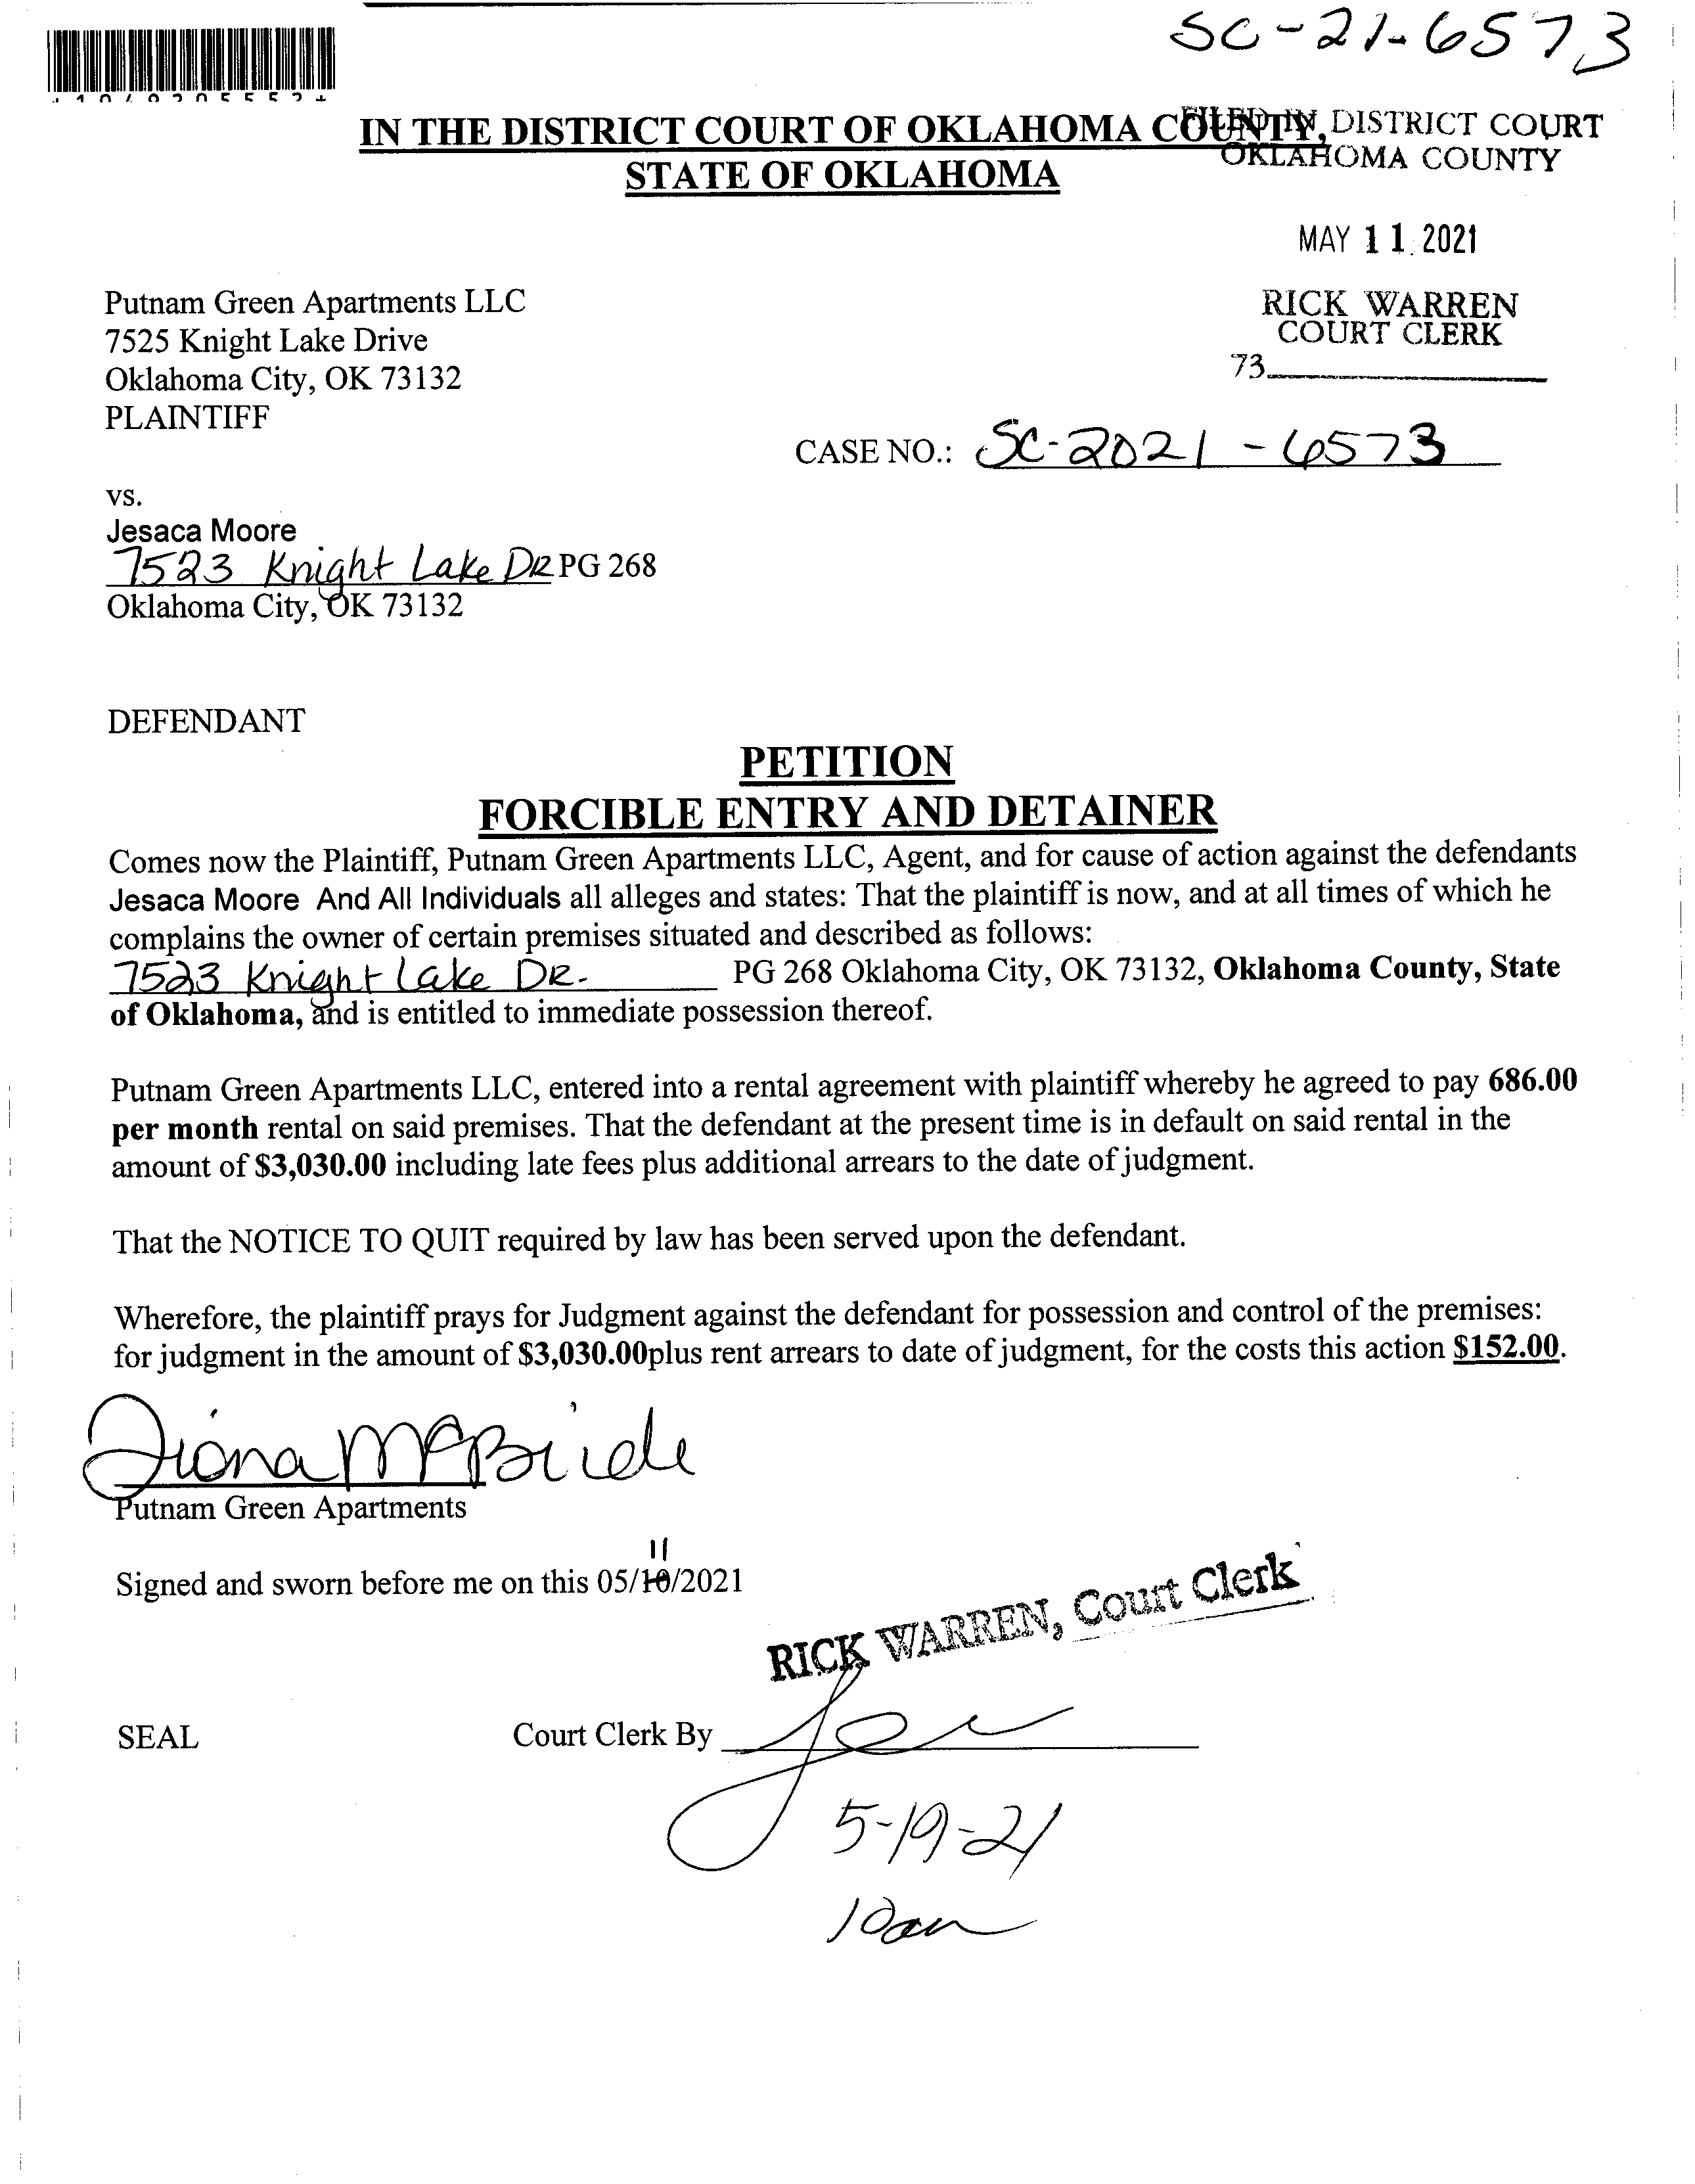 SC-21-6573
IN THE DISTRICT COURT OF OKLAHOMA COUNTY,
STATE OF OKLAHOMA
FILED IN DISTRICT COURT
OKLAHOMA COUNTY
MAY 11 2021
RICK WARREN
COURT CLERK
73
Putnam Green Apartments LLC
7525 Knight Lake Drive
Oklahoma City, OK 73132
PLAINTIFF
CASE NO.: SC-2021-6573
vs.
Jesaca Moore
7523 Knight Lake DR PG 268
Oklahoma City, OK 73132
DEFENDANT
PETITION
FORCIBLE ENTRY AND DETAINER
Comes now the Plaintiff, Putnam Green Apartments LLC, Agent, and for cause of action against the defendants
Jesaca Moore And All Individuals all alleges and states: That the plaintiff is now, and at all times of which he
complains the owner of certain premises situated and described as follows:
7523 Knight Lake DR. PG 268 Oklahoma City, OK 73132, Oklahoma County, State
of Oklahoma, and is entitled to immediate possession thereof.
Putnam Green Apartments LLC, entered into a rental agreement with plaintiff whereby he agreed to pay 686.00
per month rental on said premises. That the defendant at the present time is in default on said rental in the
amount of $3,030.00 including late fees plus additional arrears to the date of judgment.
That the NOTICE TO QUIT required by law has been served upon the defendant.
Wherefore, the plaintiff prays for Judgment against the defendant for possession and control of the premises:
for judgment in the amount of $3,030.00plus rent arrears to date of judgment, for the costs this action $152.00.
Fiona McBride
Putnam Green Apartments
11
Signed and sworn before me on this 05/10/2021
RICK WARREN, Court Clerk
SEAL Court Clerk By
5-19-21
10am